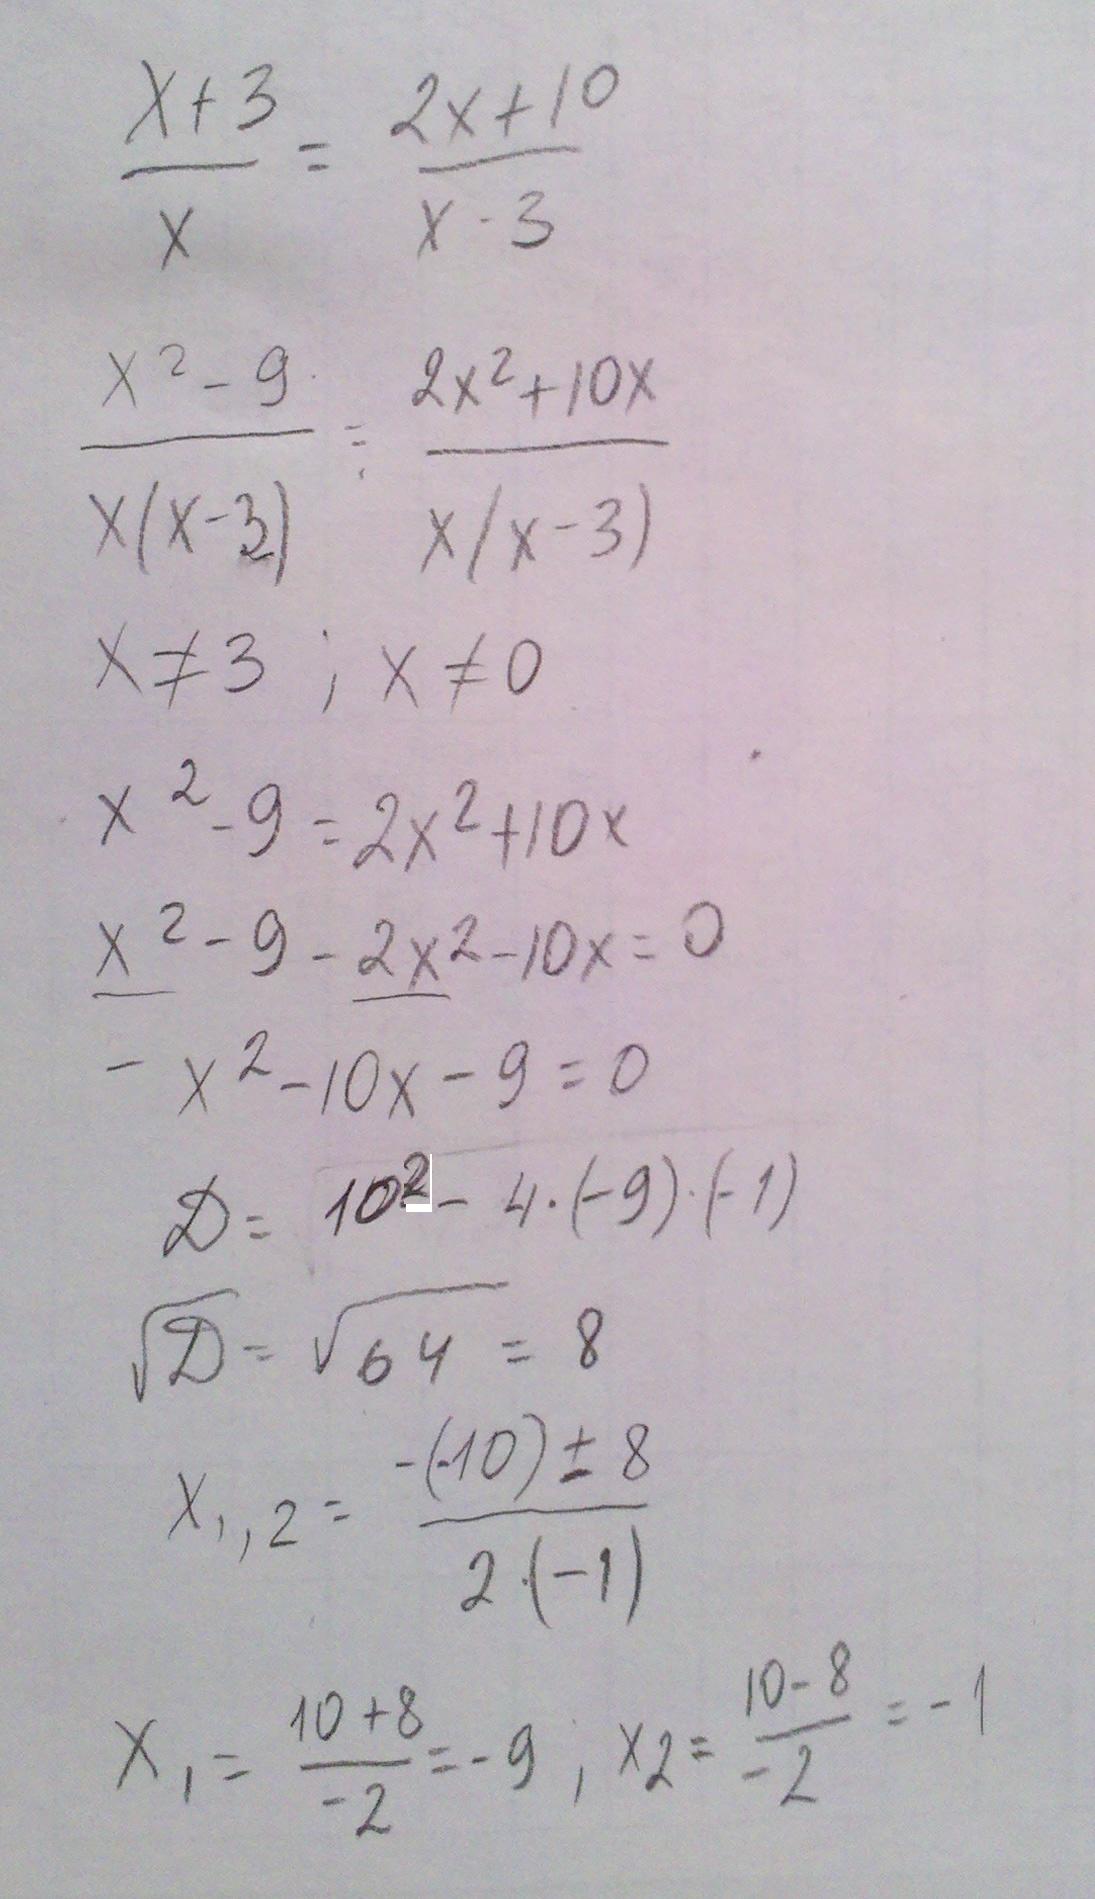 x+3/x = 2x+10/x-3
x²-9/x(x-3) = 2x²+10x/x(x-3)
x≠3 ; x≠0
x²-9=2x²+10x
x²-9-2x²-10x=0
-x²-10x-9=0
D= 10²-4·(-9)·(-1)
√D=√64=8
x₁,₂= -(-10)±8/2·(-1)
x₁= 10+8/-2=-9; x₂= 10-8/-2=-1